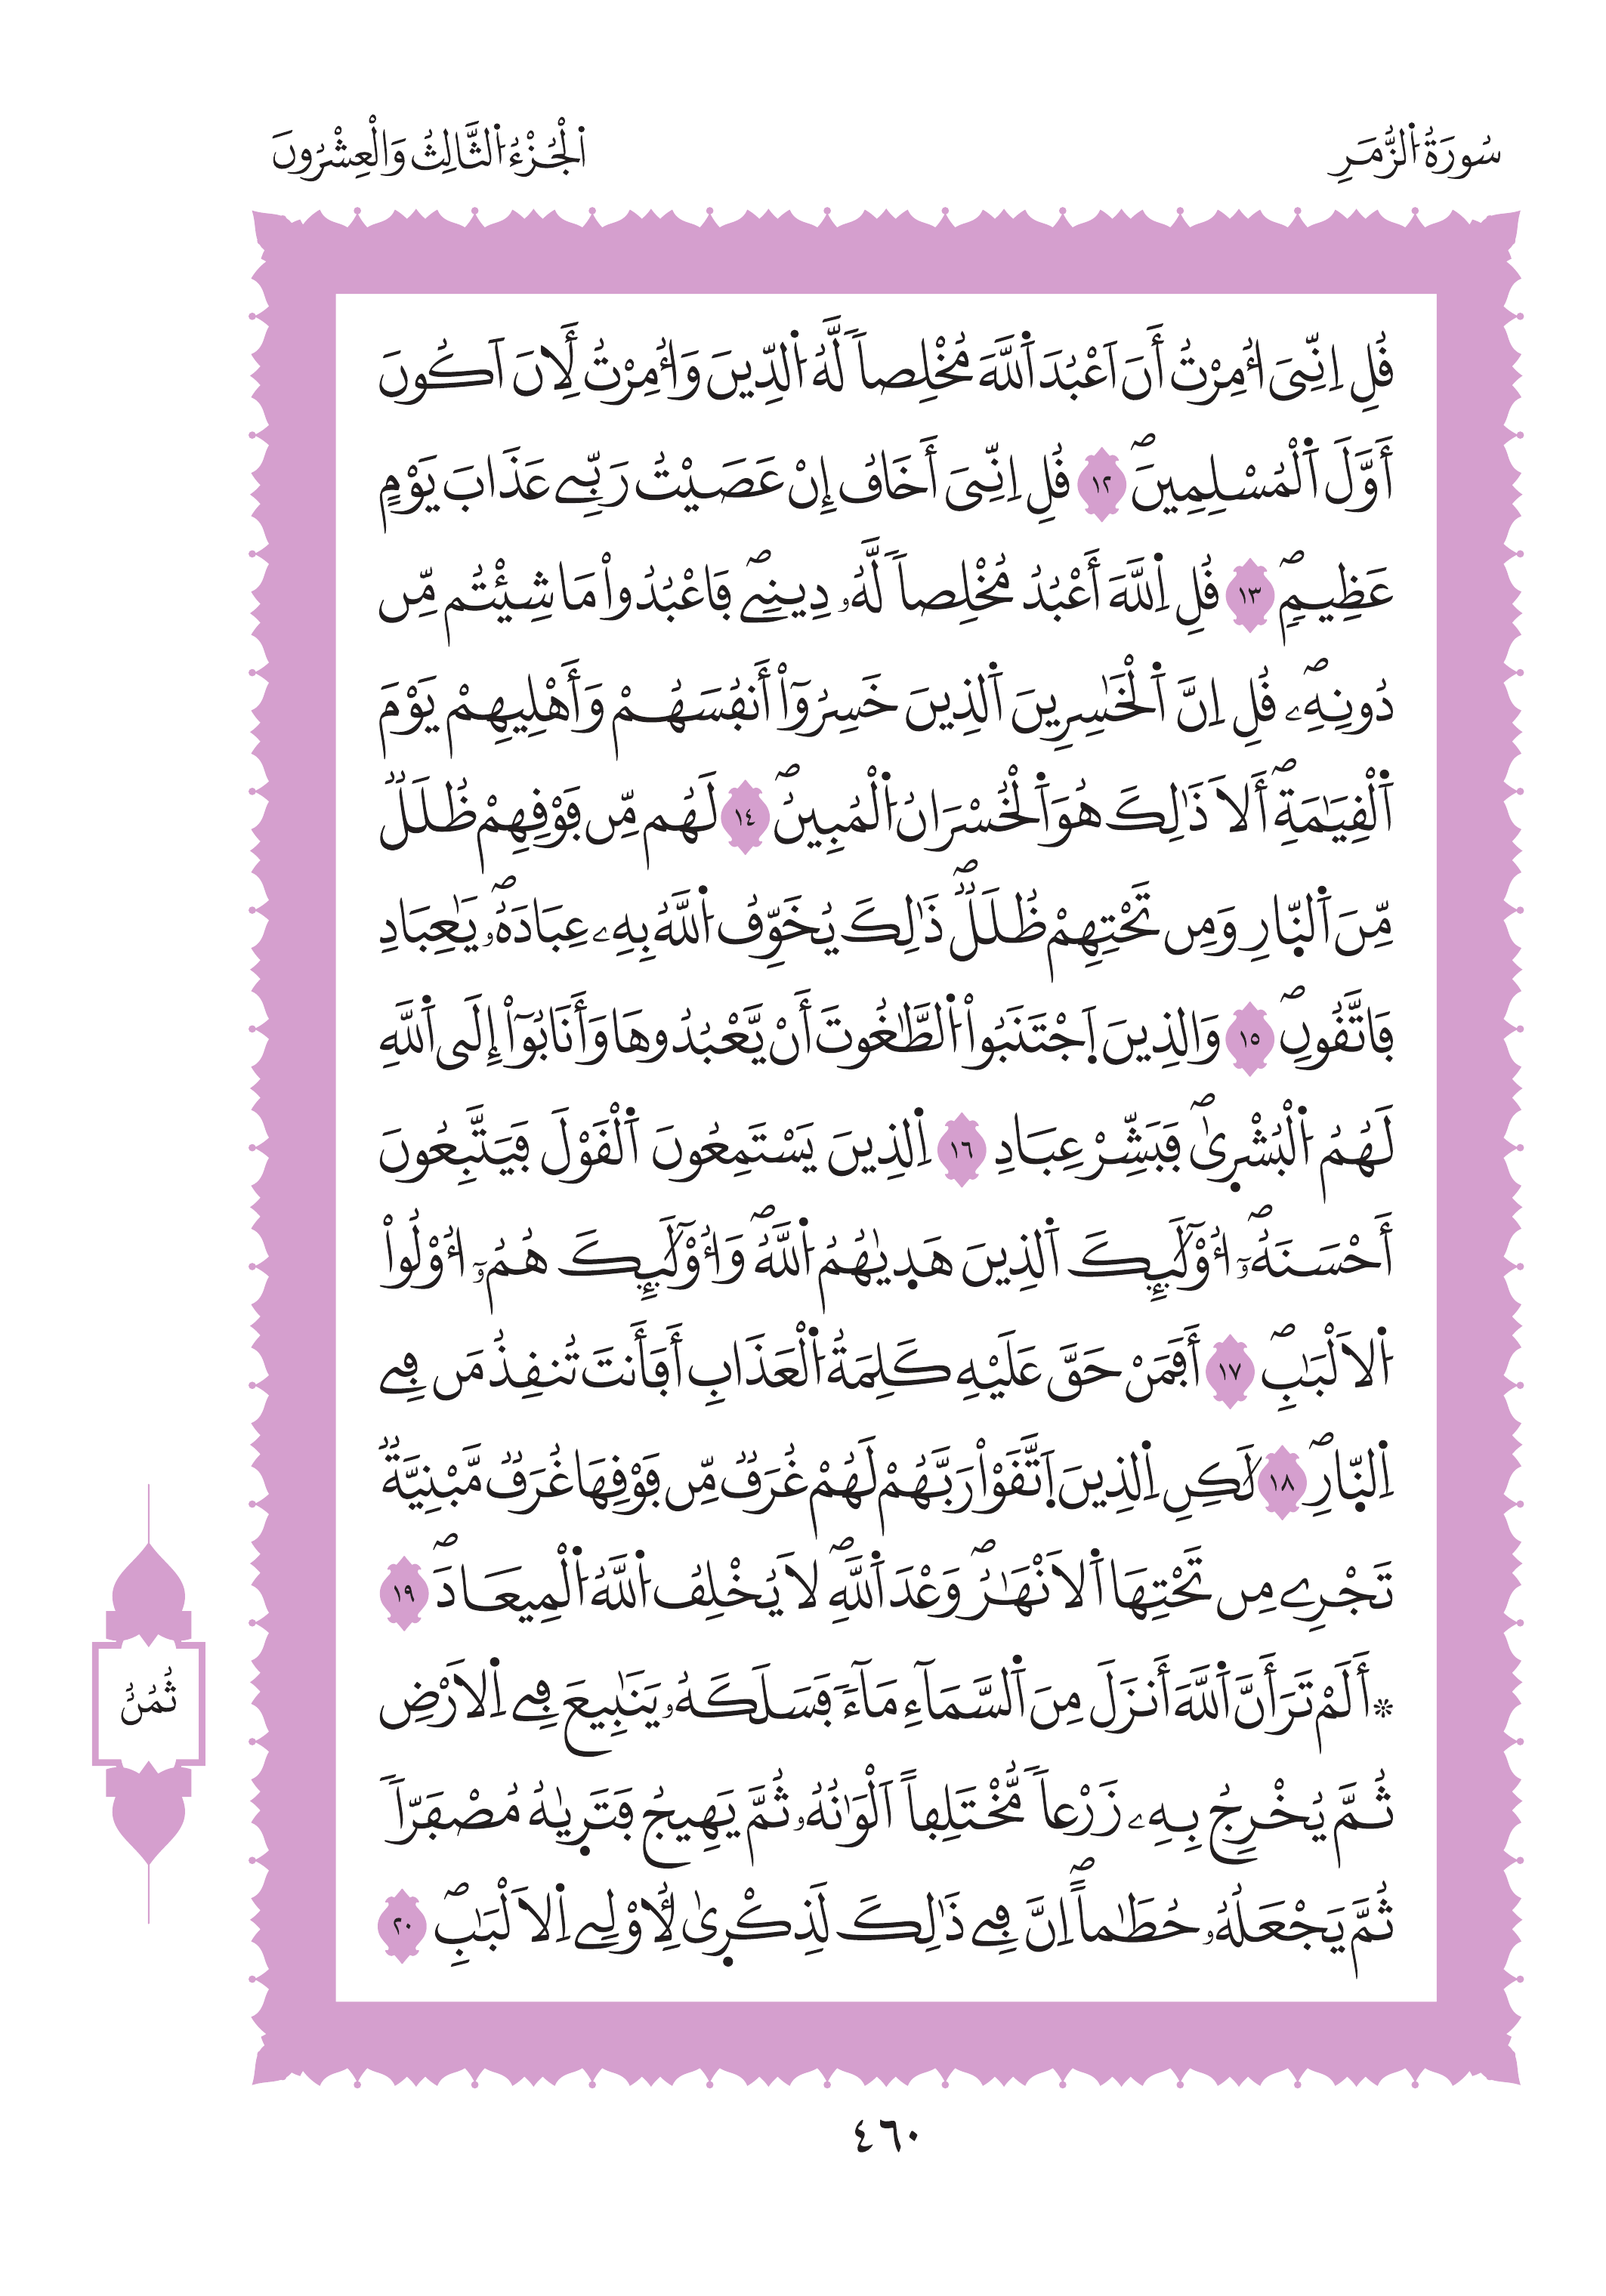 سُورَةُ الزُّمَرِ
الْجُزْءُ الثَّالِثُ وَالْعِشْرُونَ
قُلِ اِنِّيَ أُمِرْتُ أَنَ اَعْبُدَ اَللَّهَ مُخْلِصاٗ لَّهُ اُلدِّينَ وَأُمِرْتُ لِأَنَ اَكُونَ
أَوَّلَ اَلْمُسْلِمِينَۖ ١٢ قُلِ اِنِّيَ أَخَافُ إِنْ عَصَيْتُ رَبِّے عَذَابَ يَوْمٍ
عَظِيمٖۖ ١٣ قُلِ اِللَّهَ أَعْبُدُ مُخْلِصاٗ لَّهُۥ دِينِےۖ فَاعْبُدُواْ مَا شِئْتُم مِّن
دُونِهِۦۖ قُلِ اِنَّ اَلْخَٰسِرِينَ اَلذِينَ خَسِرُوٓاْ أَنفُسَهُمْ وَأَهْلِيهِمْ يَوْمَ
اَلْقِيَٰمَةِۖ أَلَا ذَٰلِكَ هُوَ اَلْخُسْرَانُ اُلْمُبِينُۖ ١٤ لَهُم مِّن فَوْقِهِمْ ظُلَلٞ
مِّنَ اَلنّ۪ارِ وَمِن تَحْتِهِمْ ظُلَلٞۖ ذَٰلِكَ يُخَوِّفُ اُللَّهُ بِهِۦ عِبَادَهُۥۖ يَٰعِبَادِ
فَاتَّقُونِۖ ١٥ وَالذِينَ اَ۪جْتَنَبُواْ اُلطَّٰغُوتَ أَنْ يَّعْبُدُوهَا وَأَنَابُوٓاْ إِلَي اَللَّهِ
لَهُمُ اُلْبُشْر۪ىٰۖ فَبَشِّرْ عِبَادِ ١٦ اِلذِينَ يَسْتَمِعُونَ اَلْقَوْلَ فَيَتَّبِعُونَ
أَحْسَنَهُۥٓۖ أُوْلَٰٓئِكَ اَلذِينَ هَد۪يٰهُمُ اُللَّهُۖ وَأُوْلَٰٓئِكَ هُمُۥٓ أُوْلُواْ
اُلَالْبَٰبِۖ ١٧ أَفَمَنْ حَقَّ عَلَيْهِ كَلِمَةُ اُلْعَذَابِ أَفَأَنتَ تُنقِذُ مَن فِے
اِلنّ۪ارِۖ ١٨ لَٰكِنِ اِلذِينَ اَ۪تَّقَوْاْ رَبَّهُمْ لَهُمْ غُرَفٞ مِّن فَوْقِهَا غُرَفٞ مَّبْنِيَّةٞ
تَجْرِے مِن تَحْتِهَا اَلَانْهَٰرُۖ وَعْدَ اَللَّهِۖ لَا يُخْلِفُ اُللَّهُ اُلْمِيعَادَۖ ١٩
۞ أَلَمْ تَرَ أَنَّ اَللَّهَ أَنزَلَ مِنَ اَلسَّمَآءِ مَآءٗ فَسَلَكَهُۥ يَنَٰبِيعَ فِے اِلَارْضِ
ثُمَّ يُخْرِجُ بِهِۦ زَرْعاٗ مُّخْتَلِفاً اَلْوَٰنُهُۥ ثُمَّ يَهِيجُ فَتَر۪يٰهُ مُصْفَرّاٗ
ثُمَّ يَجْعَلُهُۥ حُطَٰماًۖ اِنَّ فِے ذَٰلِكَ لَذِكْر۪ىٰ لِأُوْلِے اِلَالْبَٰبِۖ ٢٠
ثُمُنُ
٤٦٠